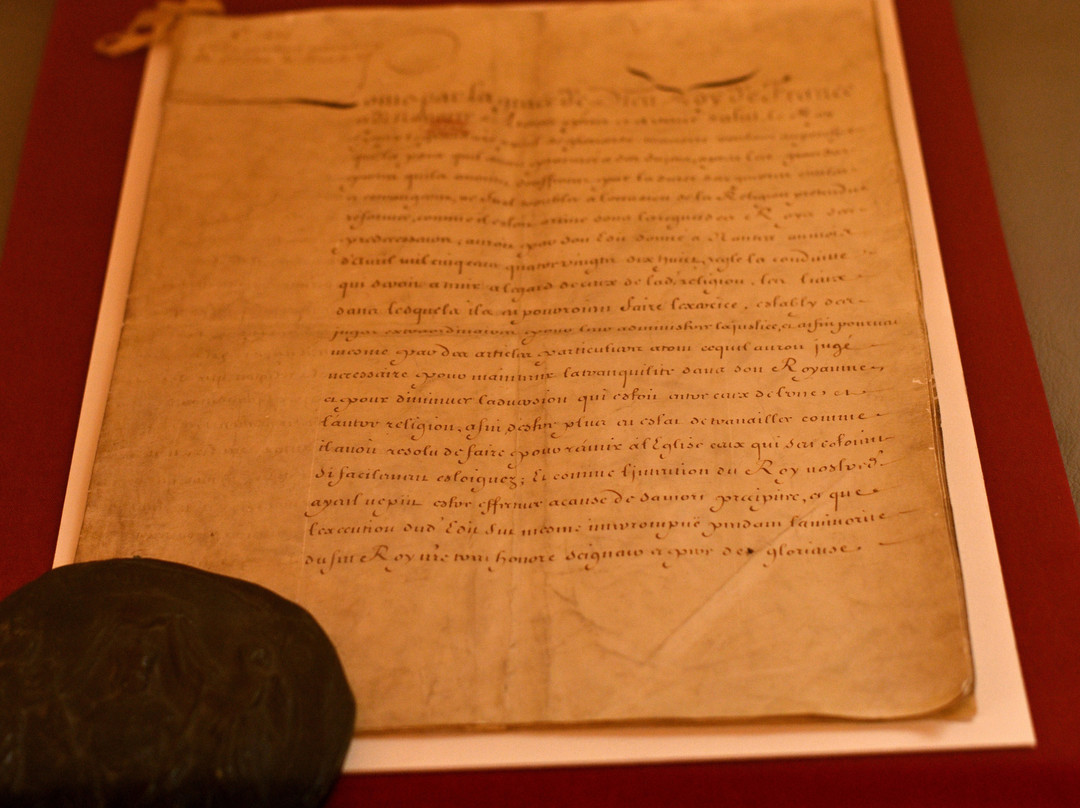 Louis par la grace de Dieu Roy de France
et de Navarre a tous presens et a venir salut. Le Roy
de glorieuse memoire voulant empescher
que la paix quil avoit procurée a ses sujets, apres les grandes
pertes quils avoient souffertes par la durée des guerres civiles
et estrangeres, ne fust troublée a loccasion de la Religion pretendue
reformée, comme il estoit arrivé sous les regnes des Roys ses
predecesseurs, auroit par son Edit donné a Nantes au mois
d'Avril mil cinq cens quatre vingts dix huit, reglé la conduitte
qui devoit a tenir a legard de ceux de lad. religion, les lieux
dans lesquels ils en pourroient faire lexercice, estably des
juges extraordinaires pour leur administrer la justice, et enfin pourveu
mesme par des articles particuliers a tout cequil auroit jugé
necessaire pour maintenir la tranquilité dans son Royaume,
et pour diminuer laversion qui estoit entre ceux de lune et
lautre religion, afin destre plus en estat de travailler comme
il avoit resolu de faire pour reünir a l'Eglise ceux qui sen estoient
si facilement esloignez; Et comme l'intention du Roy nostred.
ayeul ne put estre effectuée a cause de sa mort precipitée, et que
lexecution dud. Edit fut mesme interrompuë pendant la minorité
du feu Roy nre tres honoré Seigneur et pere de glorieuse